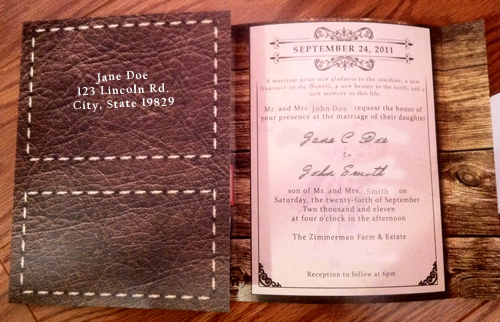 Jane Doe
123 Lincoln Rd.
City, State 19829
SEPTEMBER 24, 2011
A marriage gives new gladness to the sunshine, a new
fragrance to the flowers, a new beauty to the earth, and a
new mystery to this life.
Mr. and Mrs. John Doe request the honor of
your presence at the marriage of their daughter
Jane C Doe
to
John Smith
son of Mr. and Mrs. Smith on
Saturday, the twenty-forth of September
Two thousand and eleven
at four o'clock in the afternoon
The Zimmerman Farm & Estate
Reception to follow at 6pm